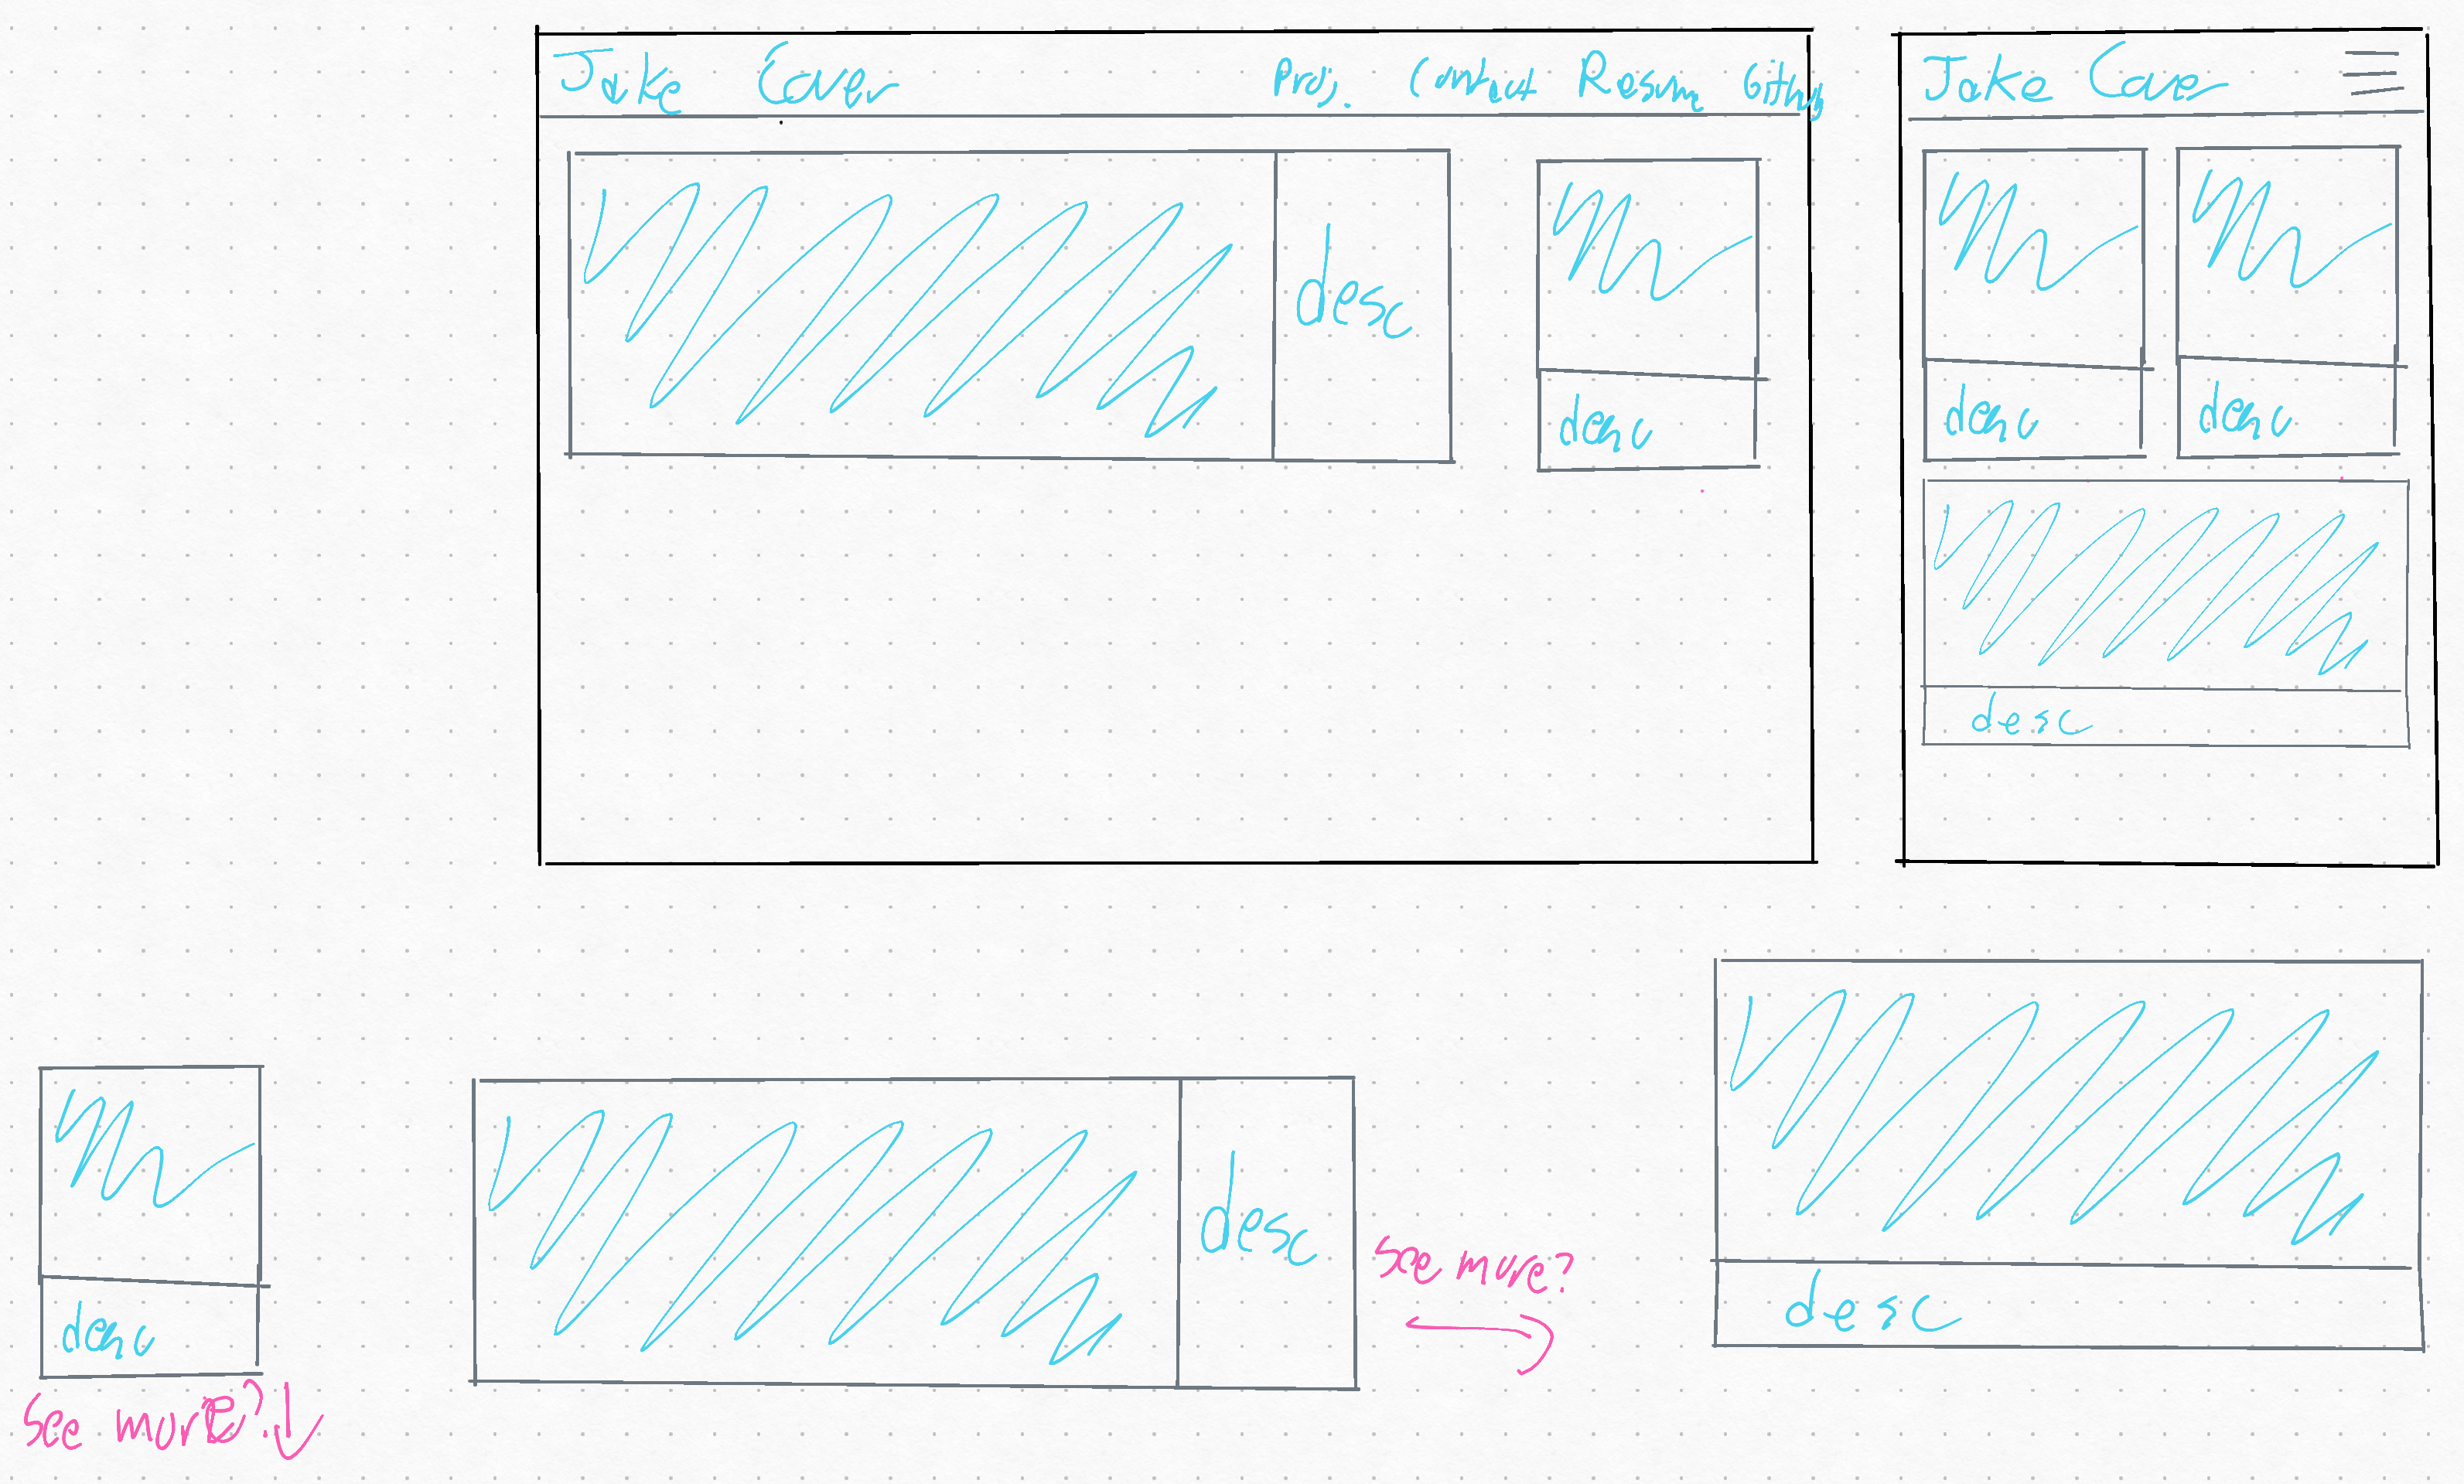 Jake Cover
Proj. Contact Resume Github
desc
desc
Jake Cover
desc
desc
desc
desc
see more?
desc
see more?
desc